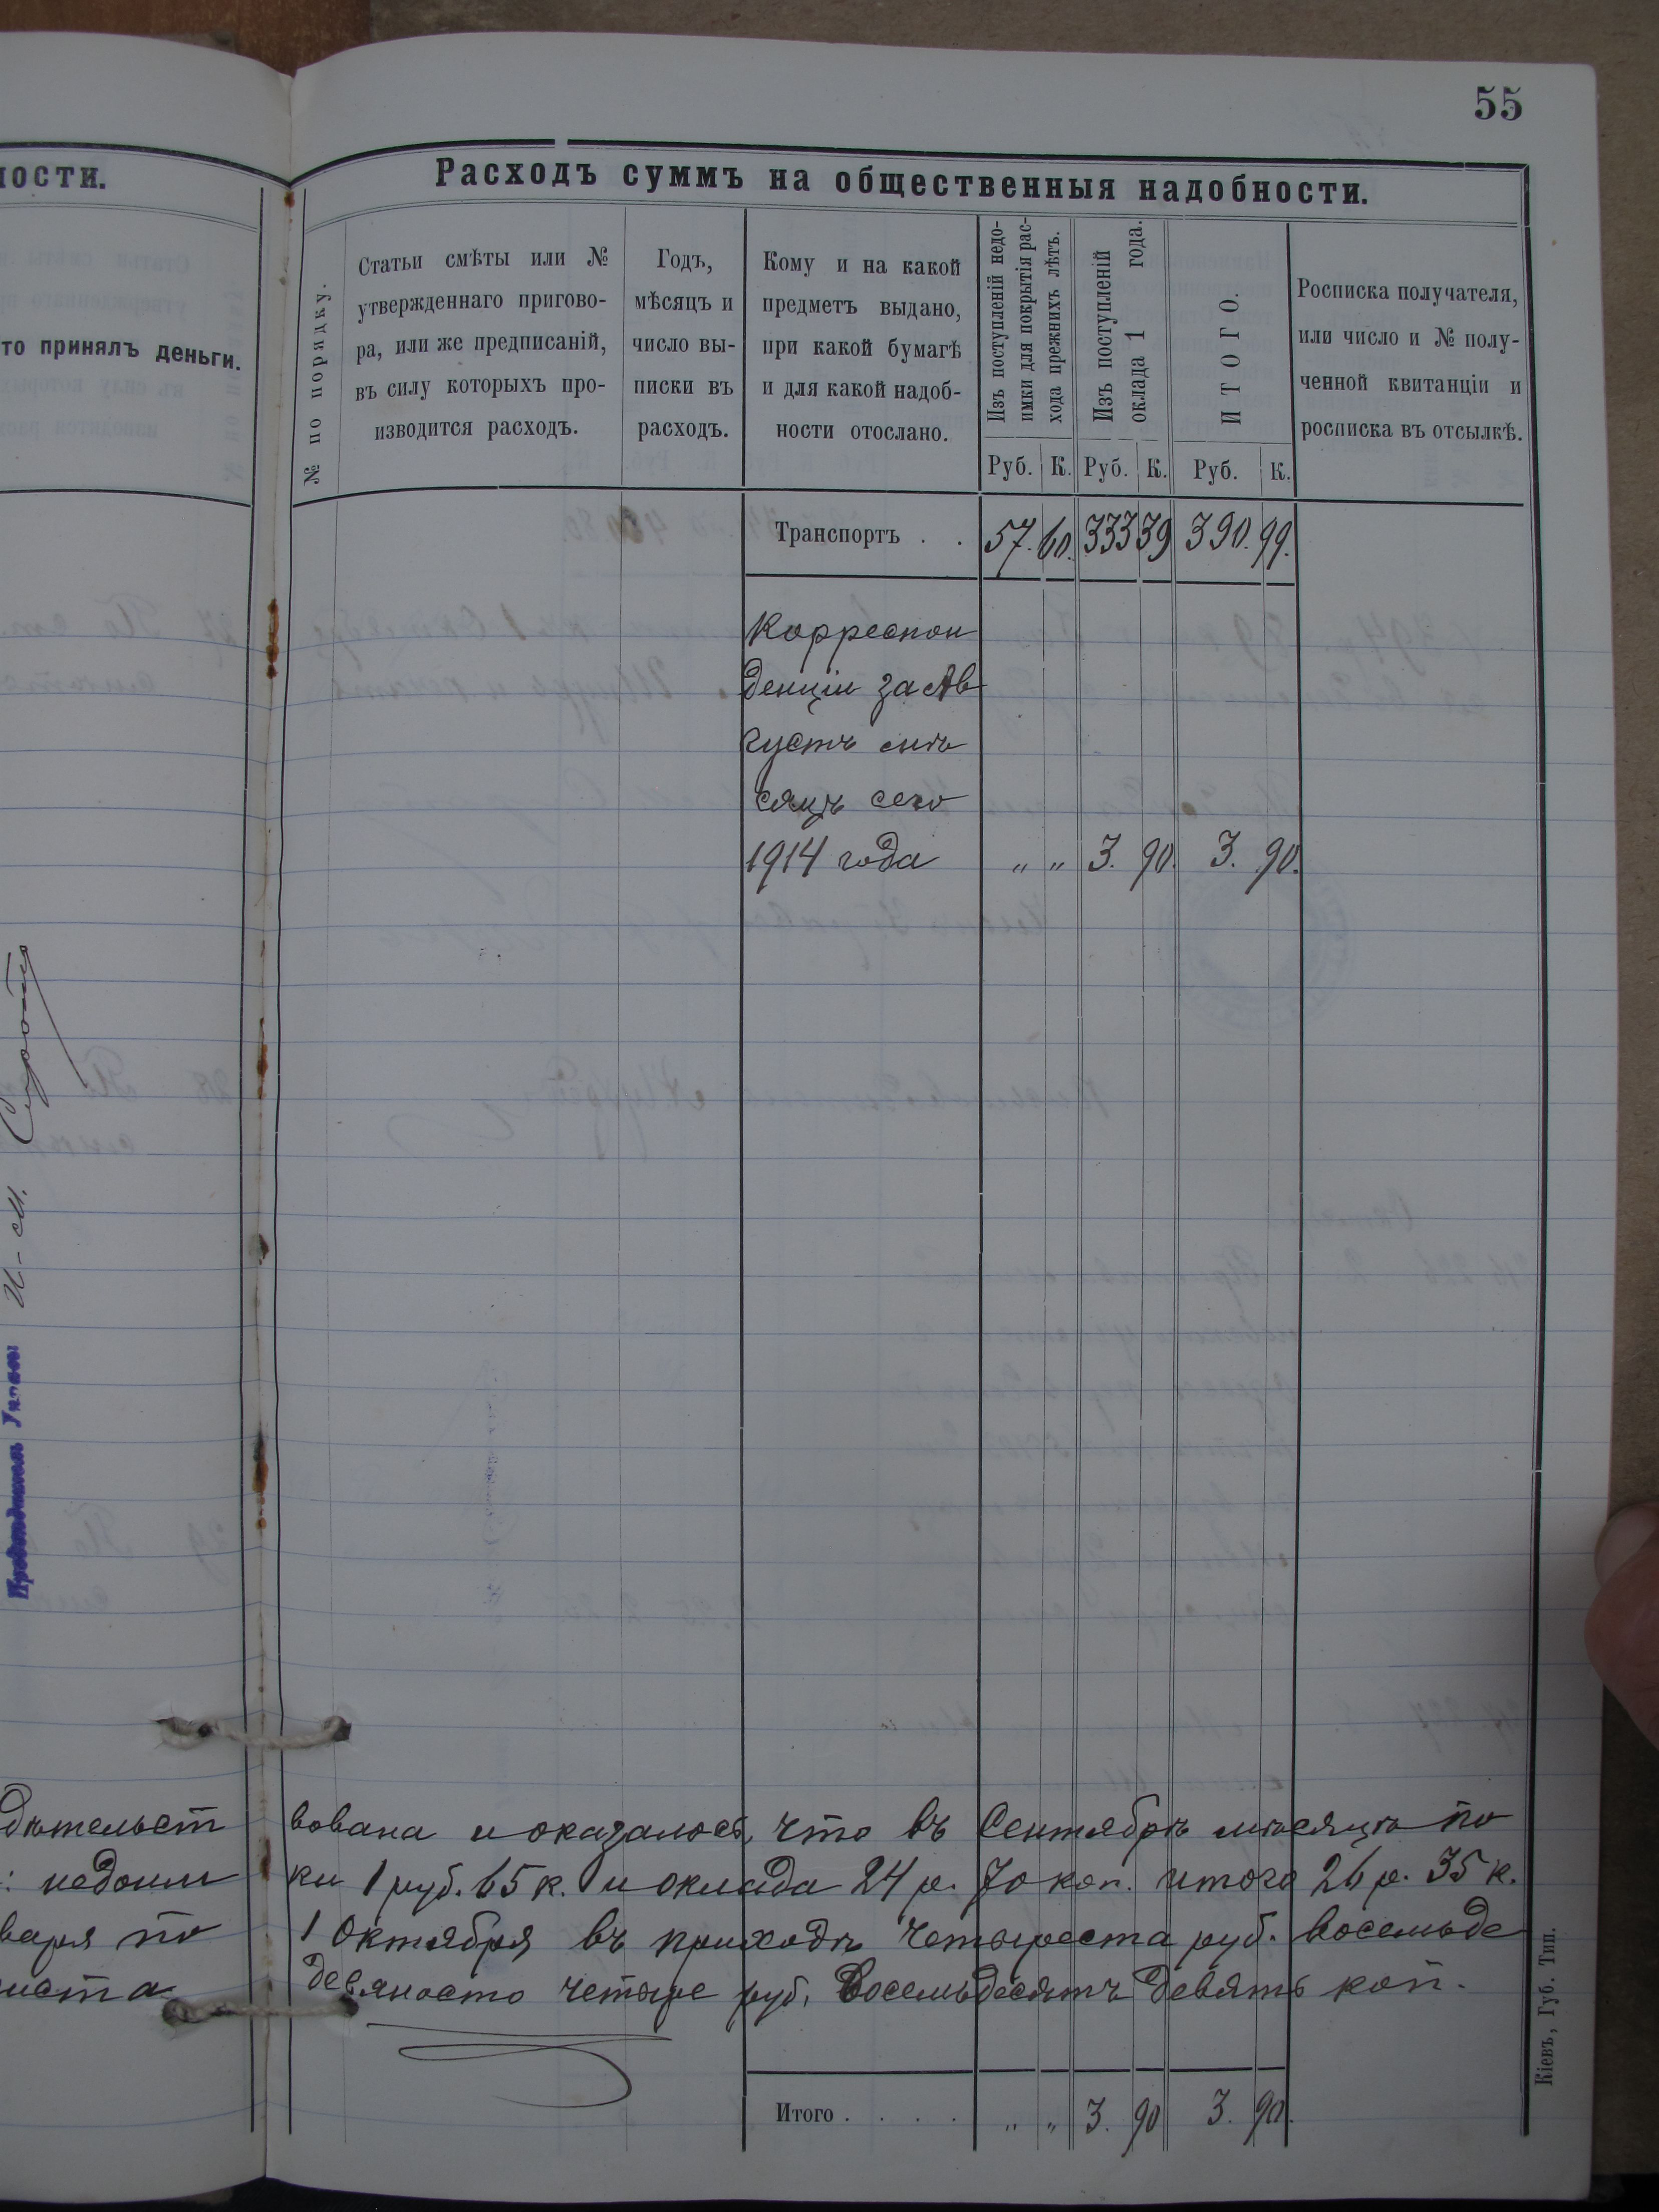 55
ности.
то принялъ деньги.
Сирота
И-М.
дѣтельст
: недоим
варя по
Расходъ суммъ на общественныя надобности.
№ по порядку.
Статьи смѣты или №
утвержденнаго пригово-
ра, или же предписаній,
въ силу которыхъ про-
изводится расходъ.
Годъ,
мѣсяцъ и
число вы-
писки въ
расходъ.
Кому и на какой
предметъ выдано,
при какой бумагѣ
и для какой надоб-
ности отослано.
Изъ поступленій недо-
имки для покрытія рас-
хода прежнихъ лѣтъ.
Изъ поступленій
оклада 1 года.
ИТОГО.
Росписка получателя,
или число и № полу-
ченной квитанціи и
росписка въ отсылкѣ.
Руб. К. Руб. К. Руб. К.
Транспортъ . . 57. 60. 333 39 390. 99.
Корреспон
денціи за Ав
густъ мѣ
сяцъ сего
1914 года „ „ 3. 90. 3. 90.
вована и оказалось, что въ Сентябрѣ мѣсяцѣ по
ки 1 руб. 65 к. и оклада 24 р. 70 коп. итого 26 р. 35 к.
1 Октября въ приходѣ Четыреста руб. восемьде
девяносто четыре руб. Восемьдесятъ девять коп.
Итого . . . . „ „ 3. 90 3. 90.
Кіевъ, Губ. Тип.